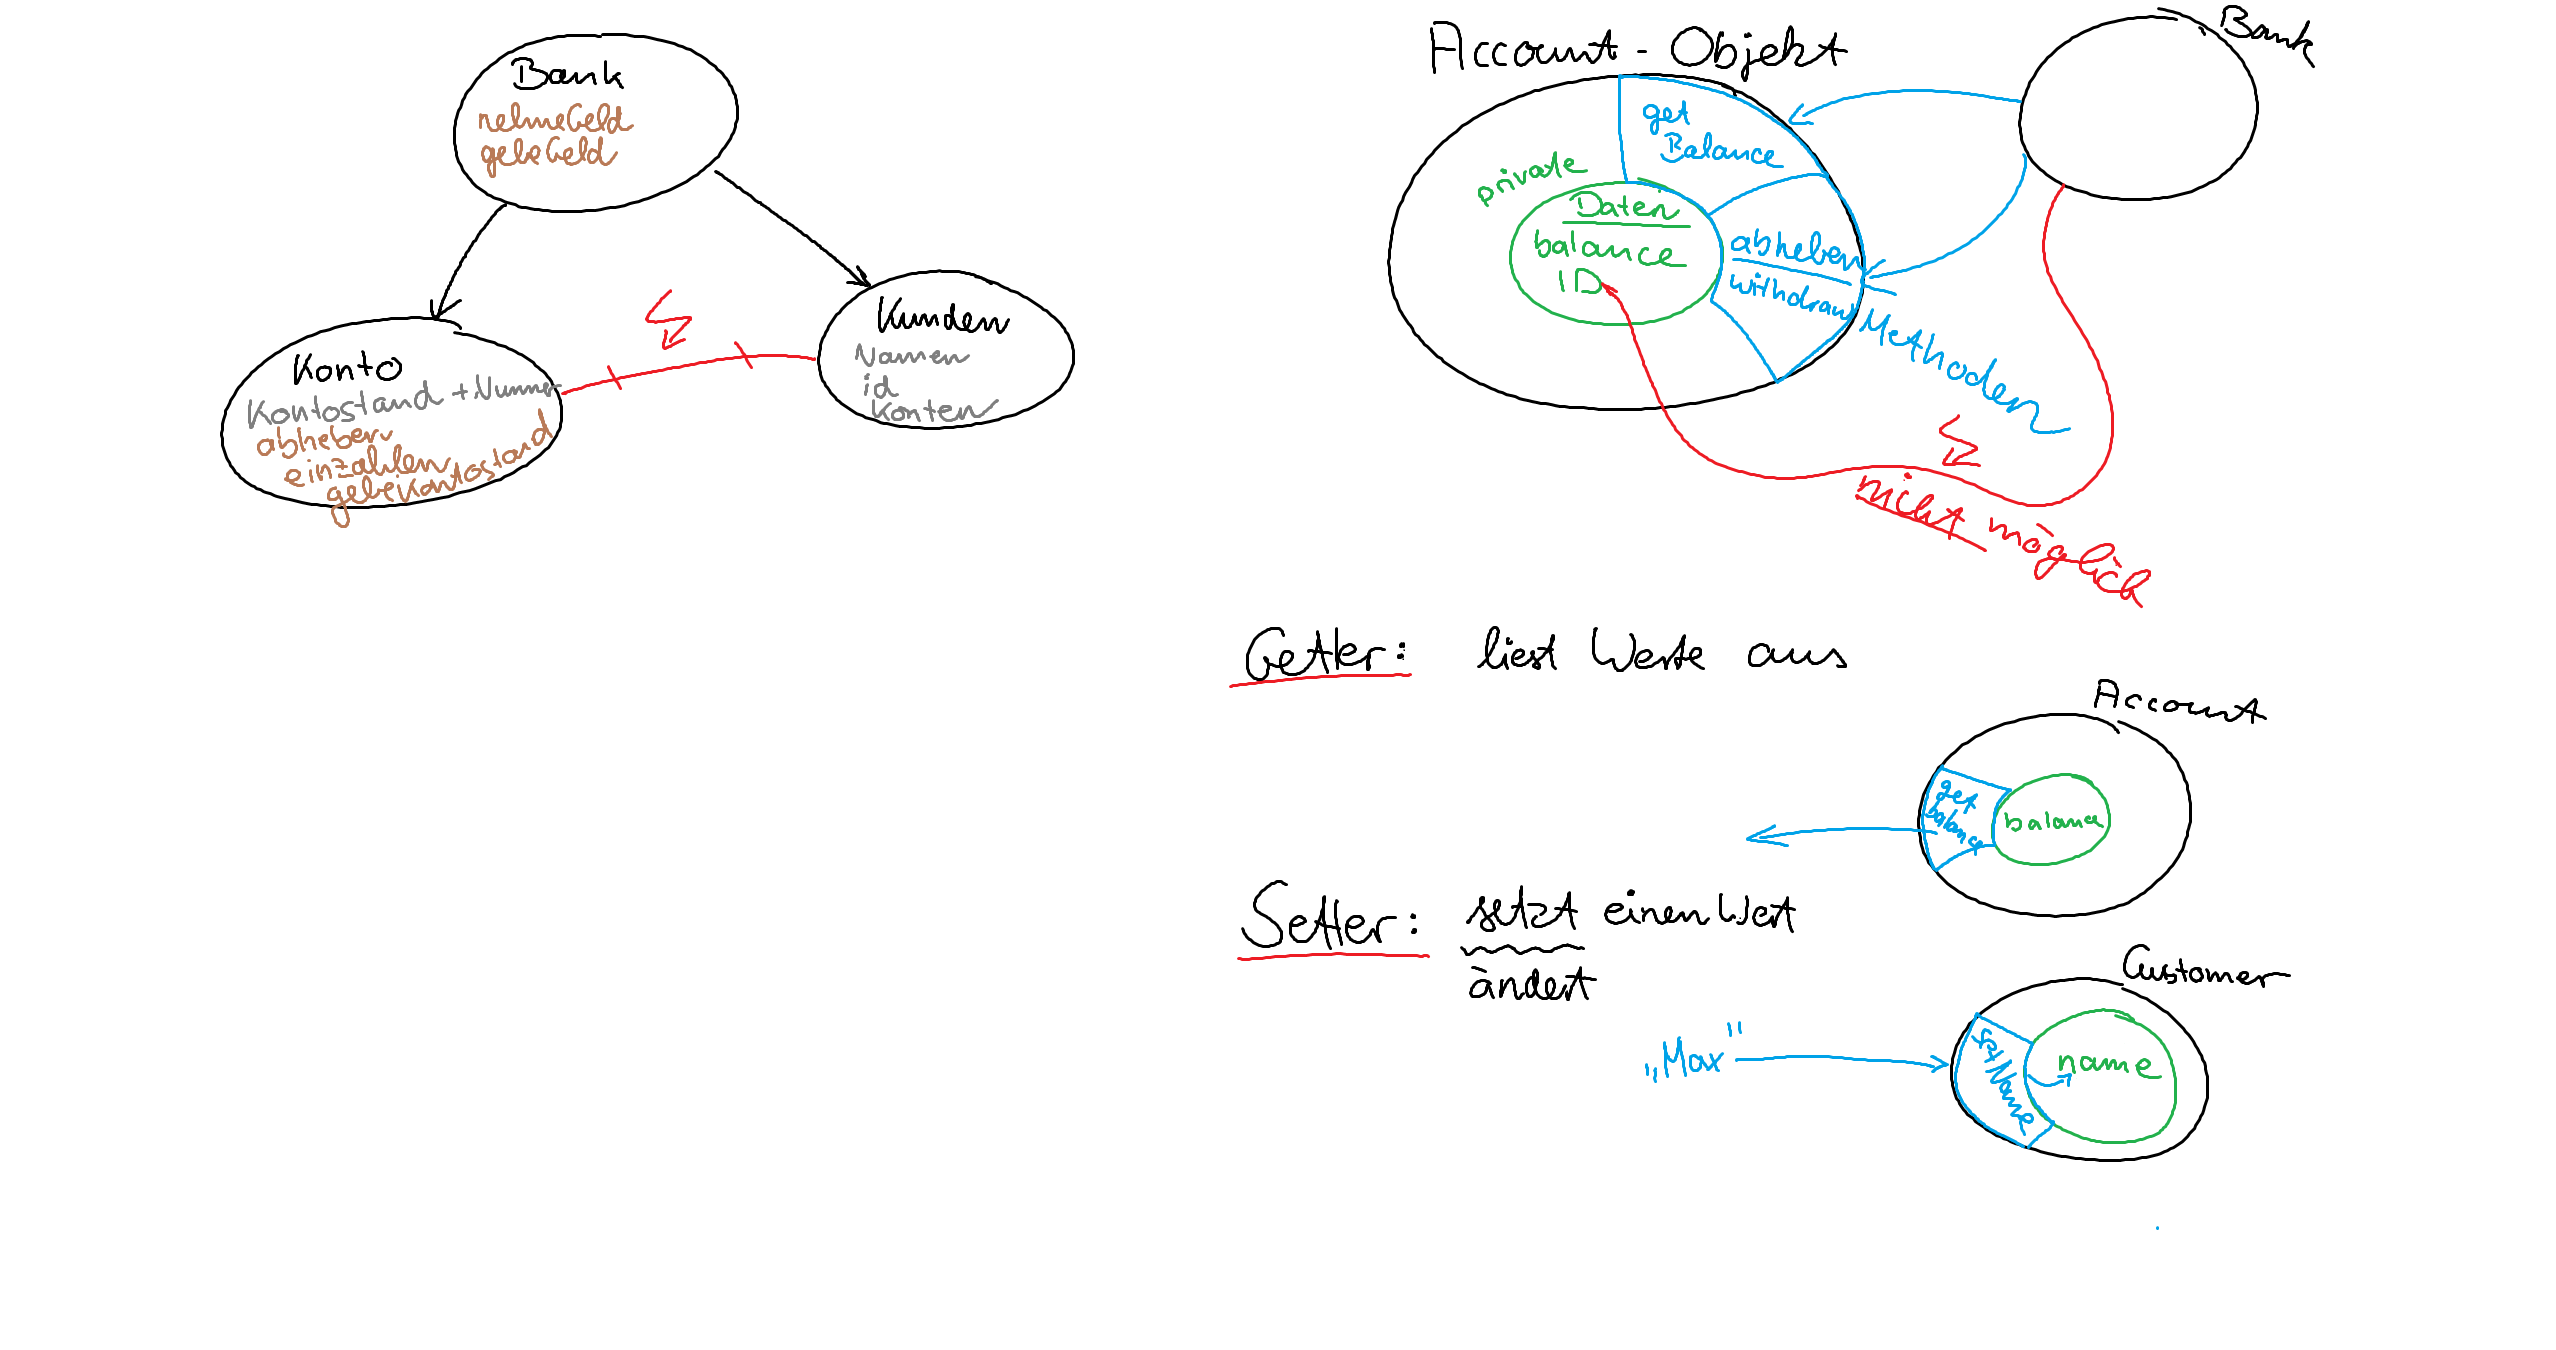 Bank
nehmeGeld
gebeGeld
Konto
Kontostand + Nummer
abheben
einzahlen
gebeKontostand
Kunden
Namen
id
Konten
Account - Objekt
Bank
get
Balance
private
Daten
balance
ID
abheben
withdraw
Methoden
nicht möglich
Getter: liest Werte aus
Account
get
balance
balance
Setter: setzt einen Wert
ändert
Customer
„Max"
setName
name